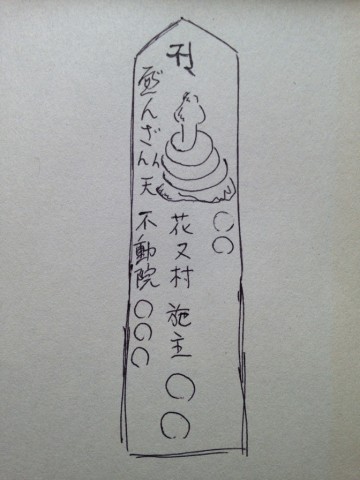 〇〇
花又村 施主 〇〇
んざん天 不動院 〇〇〇